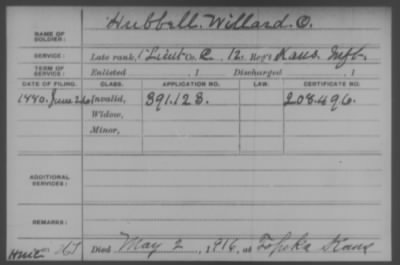 Hubbell. Willard. O.
NAME OF SOLDIER:
SERVICE: Late rank, Lieut Co. C, 12, Reg't Kans. Inft.
TERM OF SERVICE: Enlisted , 1 Discharged , 1
DATE OF FILING. CLASS. APPLICATION NO. LAW. CERTIFICATE NO.
1880. June 26 Invalid, 391.128. 208.496.
Widow,
Minor,
ADDITIONAL SERVICES:
REMARKS:
Died May 2, 1916, at Topeka Kans